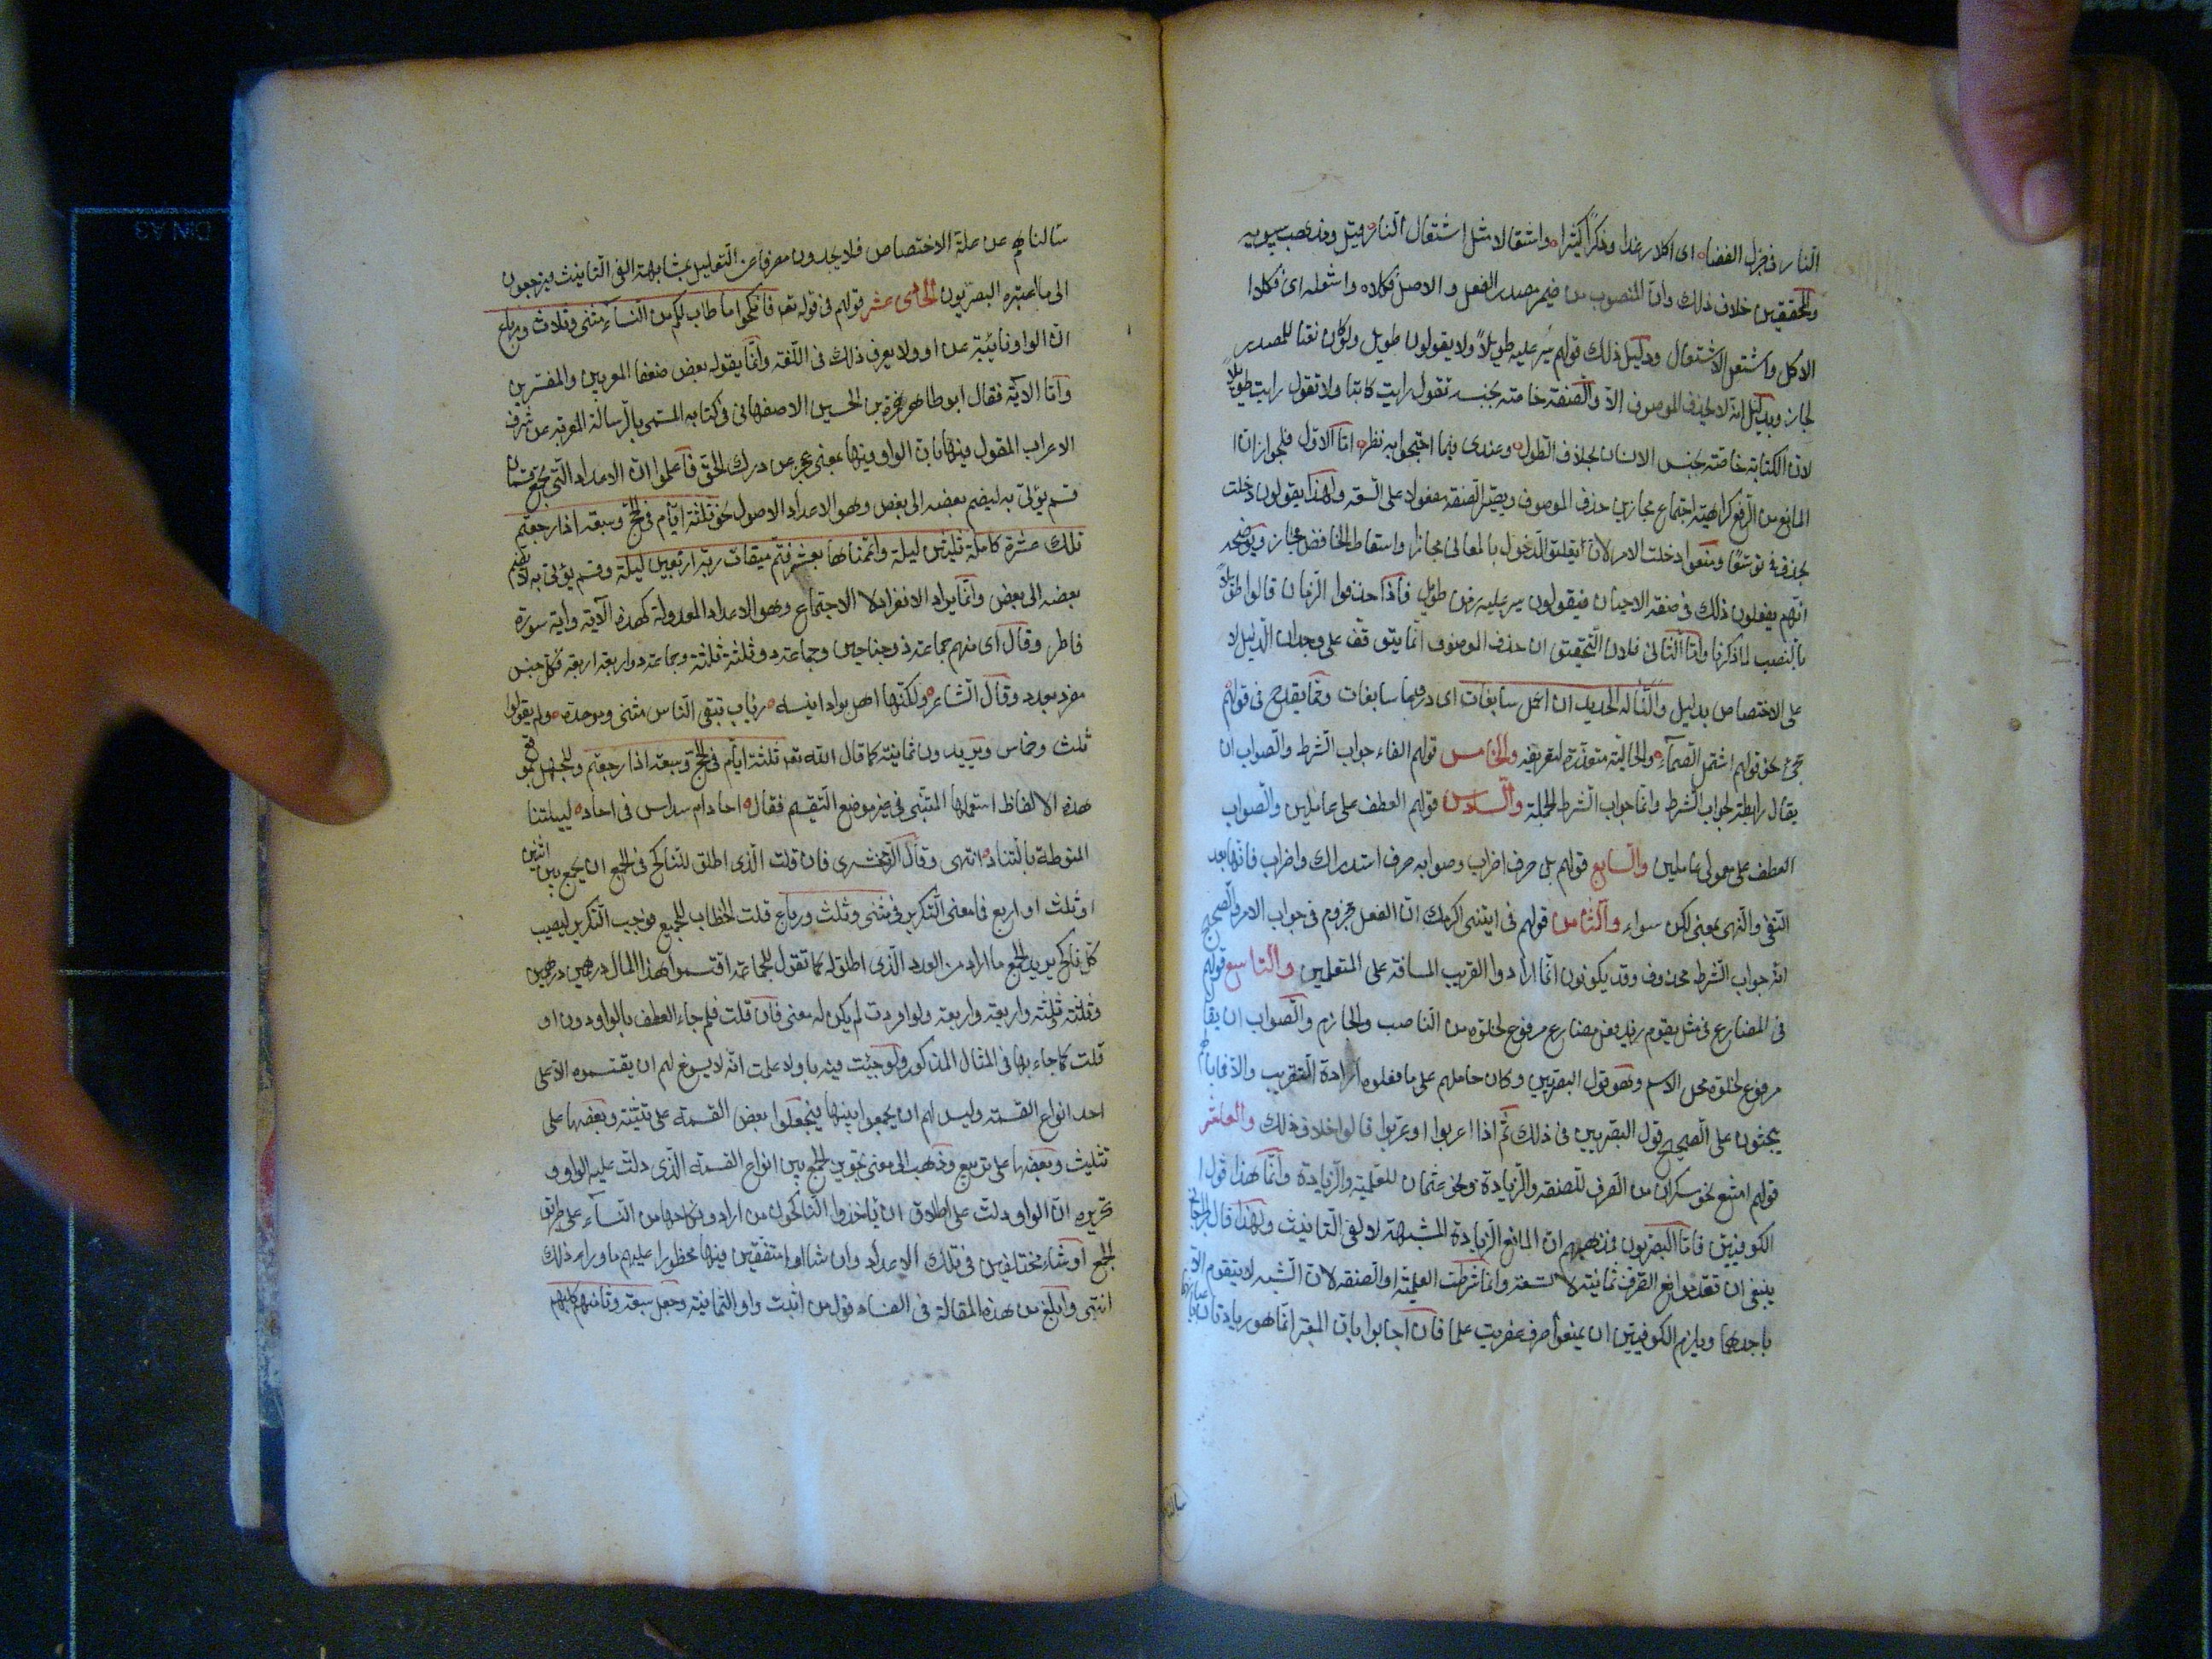 النار فى جزل الغضا اى اكلا رغدا وذكرا كثيرا واشتعالا مثل اشتعال النار قيل ومذهب سيبويه
والمحققين خلاف ذلك وان المنصوب من ضمير مصدر الفعل والاصل فكلاه واشتعله اى فكلا
الاكل واشتعل الاشتعال ودليل ذلك قولهم سير عليه طويلا ولا يقولون طويل ولو كان نعتا للمصدر
لجاز وبدليل انه لا يحذف الموصوف الا والصفة خاصة بجنسه تقول رايت كاتبا ولا تقول رايت طويلا
لان الكتابة خاصة بجنس الانسان بخلاف الطول وعندى فيما احتجوا به نظر اما الاول فلجواز ان
المانع من الرفع كراهية اجتماع مجازين حذف الموصوف وتصيير الصفة مفعولا على السعة ولهذا يقولون دخلت
بحذف فى توسعا ومنعوا دخلت الامر لان تعليق الدخول بالمعانى مجاز واسقاط الخافض مجاز وتوضيحه
انهم يفعلون ذلك فى صفة الاحيان فيقولون سير عليه زمن طويل فاذا حذفوا الزمان قالوا طويلا
بالنصب لما ذكرنا واما الثانى فلان التحقيق ان حذف الموصوف انما يتوقف على وجدان الدليل لا
على الاختصاص بدليل والنا له الحديد ان اعمل سابغات اى دروعا سابغات ومما يقدح فى قولهم
مجئ نحو قولهم اشتمل الصماء والحالية متعذرة لتعريفه والخامس قولهم الفاء جواب الشرط والصواب ان
يقال رابطة لجواب الشرط وانما جواب الشرط الجملة والسادس قولهم العطف على عاملين والصواب
العطف على معمولى عاملين والسابع قولهم بل حرف اضراب وصوابه حرف استدراك واضراب فانها بعد
النفى والنهى بمعنى لكن سواء والثامن قولهم فى ايتنى اكرمك ان الفعل مجزوم فى جواب الامر والصحيح
انه جواب الشرط محذوف وقد يكونون انما ارادوا تقريب المسافة على المتعلمين والتاسع قولهم
فى المضارع فى مثل يقوم زيد فعل مضارع مرفوع لخلوه من الناصب والجازم والصواب ان يقال
مرفوع لحلوله محل الاسم وهو قول البصريين وكان حاملهم على ما فعلوه ارادة التقريب والا فما بالهم
يبحثون على الصحيح قول البصريين فى ذلك ثم اذا اعربوا او عربوا قالوا خلاف ذلك والعاشر
قولهم امتنع نحو سكران من الصرف للصفة والزيادة ونحو عثمان للعلمية والزيادة وانما هذا قول
الكوفيين فاما البصريون فمذهبهم ان المانع الزيادة المشبهة لالفى التانيث ولهذا قال الجرجانى
ينبغى ان تعد موانع الصرف ثمانية لا تسعة وانما شرطت العلمية او الصفة لان الشبه لا يتقوم الا
باحدهما ويلزم الكوفيين ان يمنعوا صرف عفريت علما فان اجابوا بان المعتبر انما هو زيادتان باعيانهما
سالناهم عن علة الاختصاص فلا يجدون مصرفا عن التعليل بمشابهة الفى التانيث فيرجعون
الى ما اعتبره البصريون الحادى عشر قولهم فى قوله تعه فانكحوا ما طاب لكم من النساء مثنى وثلاث ورباع
ان الواو نايبة عن او ولا يعرف ذلك فى اللغة وانما يقوله بعض ضعفا المعربين والمفسرين
واما الاية فقال ابو طاهر حمزة بن الحسين الاصفهانى فى كتابه المسمى بالرسالة المعربة عن شرف
الاعراب القول فيها بان الواو فيها بمعنى او عجز عن درك الحق فاعلموا ان الاعداد التى تجمع قسمان
قسم يؤتى به ليضم بعضه الى بعض وهو الاعداد الاصول نحو ثلثة ايام فى الحج وسبعة اذا رجعتم
تلك عشرة كاملة ثلثين ليلة واتممناها بعشر فتم ميقات ربه اربعين ليلة وقسم يؤتى به لا ليضم
بعضه الى بعض وانما يراد الانفراد لا الاجتماع وهو الاعداد المعدولة كهذه الاية واية سورة
فاطر وقال اى منهم جماعة ذو جناحين وجماعة ذو ثلثة ثلثة وجماعة ذو اربعة اربعة فكل جنس
مفرد بعدد وقال الشاعر ولكنما اهلى بواد انيسه ذئاب تبغى الناس مثنى وموحد ولم يقولوا
ثلث وخماس ويريدون ثمانية كما قال الله تعه ثلثة ايام فى الحج وسبعة اذا رجعتم وللجهل بموقع
هذه الالفاظ استعملها المتنبى فى غير موضع التقسيم فقال احاد ام سداس فى احاد لييلتنا
المنوطة بالتناد انتهى وقال الزمخشرى فان قلت الذى اطلق للناكح فى الجمع ان يجمع بين اثنين
او ثلث او اربع فما معنى التكرير فى مثنى وثلث ورباع قلت الخطاب للجميع فوجب التكرير ليصيب
كل ناكح يريد الجمع ما اراد من العدد الذى اطلق له كما تقول للجماعة اقتسموا هذا المال درهمين درهمين
وثلثة ثلثة واربعة واربعة ولو افردت لم يكن له معنى فان قلت فلم جاء العطف بالواو دون او
قلت كما جاء بها فى المثال المذكور ولو جئت فيه باو لاعلمت انه لا يسوغ لهم ان يقتسموه الا على
احد انواع القسمة وليس لهم ان يجمعوا بينها فيجعلوا بعض القسمة على تثنية وبعضها على
تثليث وبعضها على تربيع وذهب الى معنى تجويز الجمع بين انواع القسمة الذى دلت عليه الواو و
تحريره ان الواو دلت على اطلاق ان ياخذوا الناكحون من ارادو نكاحها من النساء على طريق
الجمع ان شاء مختلفين فى تلك الاعداد وان شااوا متفقين فيها محظورا عليهم ما وراء ذلك
انتهى وابلغ من هذه المقالة فى الفساد قول من اثبت واو الثمانية وجعل سبعة وثامنهم كلبهم